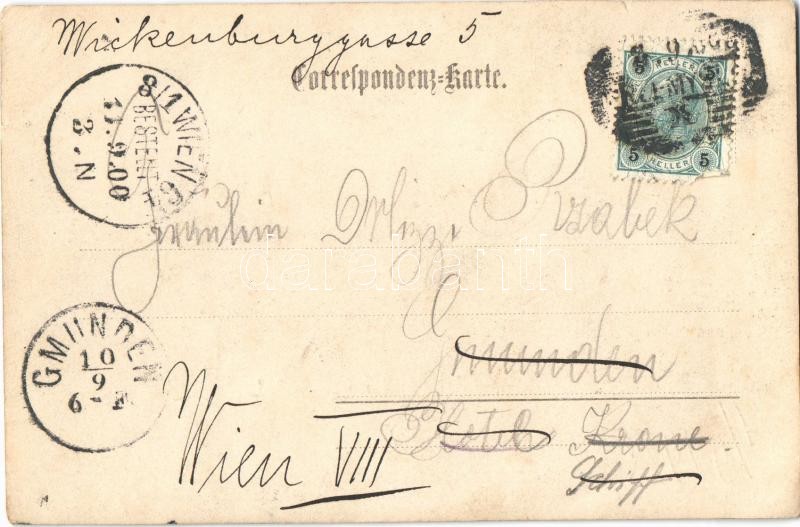 Wickenburggasse 5
Correspondenz-Karte.
8/1 WIEN
BESTELLT
11.9.00
5 HELLER 5
5 HELLER 5
Fräulein Mizzi
darabanth
GMUNDEN
10
9
6-
Gmunden
Wien VIII
Hotel Krone
Schiff